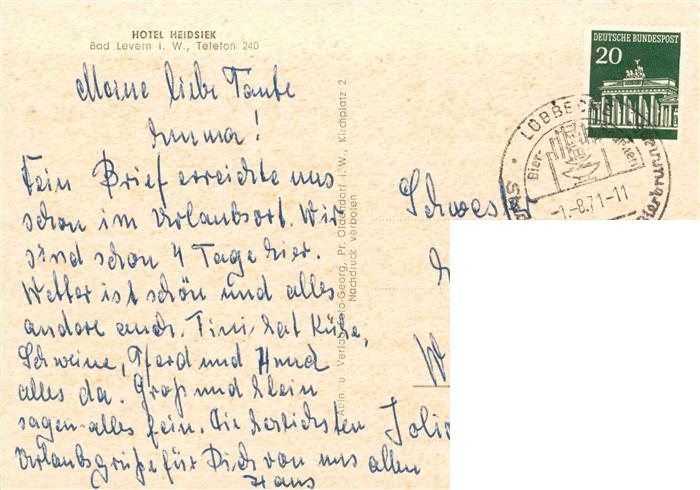 HOTEL HEIDSIEK
Bad Levern i. W., Telefon 240
Meine liebe Tante
Emma!
Dein Brief erreichte uns
schon im Urlaubsort. Wir
sind schon 4 Tage hier.
Wetter ist schön und alles
andere auch. Tini hat Kühe,
Schweine, Pferd und Hund
alles da. Groß und klein
sagen alles fein. Die herzlichsten
Urlaubsgrüße für Dich von uns allen
Hans
Aufn. u. Verlag Foto-Georg, Pr. Oldendorf i. W., Kirchplatz 2
Nachdruck verboten
DEUTSCHE BUNDESPOST
20
LÜBBECKE
Bier-
-1.-8.71-11
Schwest
W